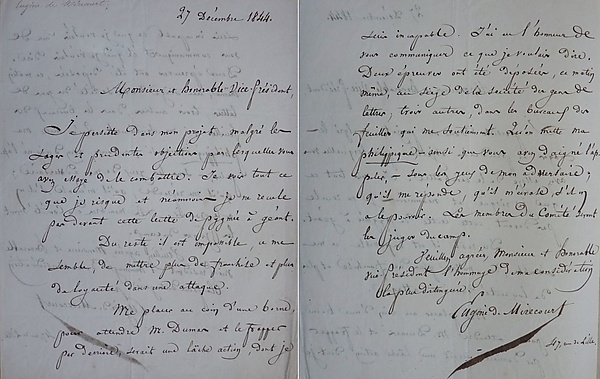 Eugène de Mirecourt
27 Décembre 1844.
Monsieur et honorable Vice-Président,
Je persiste dans mon projet, malgré les
sages et prudentes objections par lesquelles vous
avez essayé de le combattre. Je vois tout ce
que je risque et néanmoins je ne recule
pas devant cette lutte de pygmée à géant.
Du reste il est impossible, ce me
semble, de mettre plus de franchise et plus
de loyauté dans une attaque.
Me placer au coin d'une borne,
pour attendre M. Dumas et le frapper
par derrière, serait une lâche action, dont je
suis incapable. J'ai eu l'honneur de
vous communiquer ce que je voulais dire.
Deux épreuves ont été déposées, ce matin
même, au siège de la société des gens de
lettres, trois autres, dans les bureaux des
feuilles qui me soutiennent. Qu'on mette ma
philippique – ainsi que vous avez daigné l'ap
peler, – sous les yeux de mon adversaire;
qu'il me réponde, qu'il m'écrase s'il en
a le pouvoir. Les membres du Comité seront
les juges du camp.
Veuillez agréer, Monsieur et Honorable
vice Président l'hommage de ma considération
la plus distinguée.
Eugène de Mirecourt
47, rue de Lille.